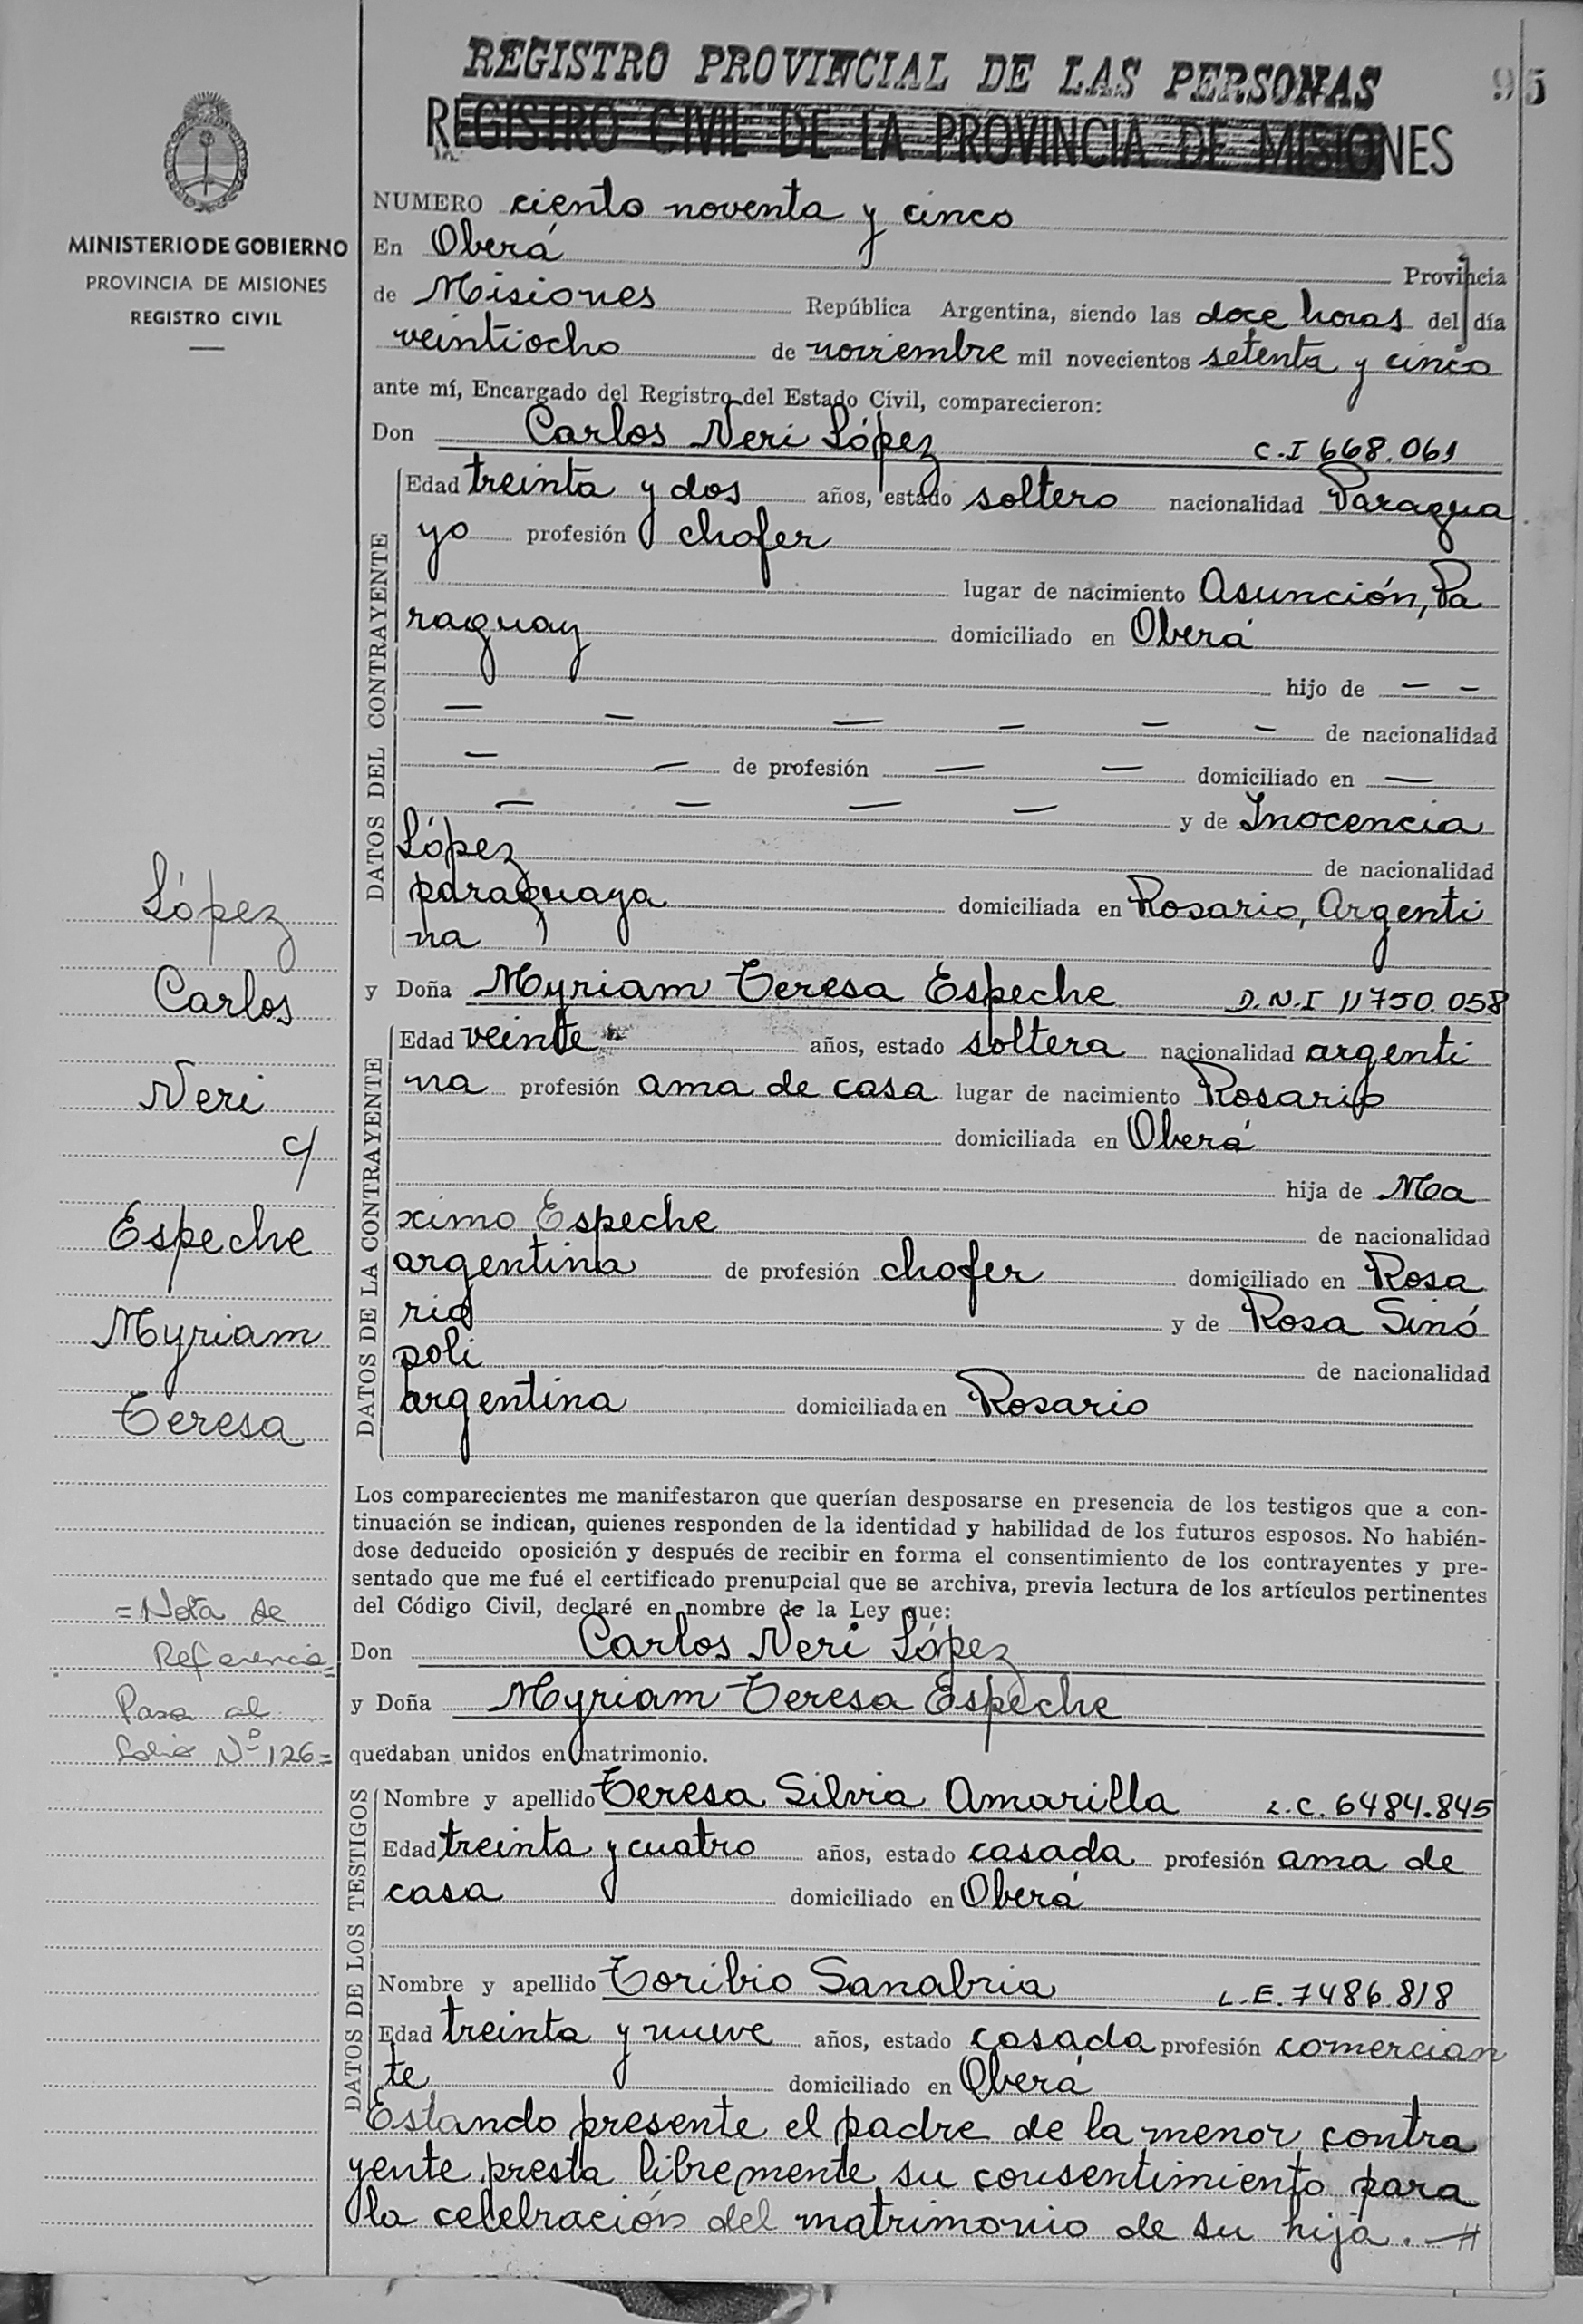 REGISTRO PROVINCIAL DE LAS PERSONAS
95
REGISTRO CIVIL DE LA PROVINCIA DE MISIONES
MINISTERIO DE GOBIERNO
PROVINCIA DE MISIONES
REGISTRO CIVIL
NUMERO ciento noventa y cinco
En Oberá Provincia
de Misiones República Argentina, siendo las doce horas del día
veintiocho de noviembre mil novecientos setenta y cinco
ante mí, Encargado del Registro del Estado Civil, comparecieron:
Don Carlos Neri López C.I 668.061
DATOS DEL CONTRAYENTE
Edad treinta y dos años, estado soltero nacionalidad Paragua
yo profesión chofer
lugar de nacimiento Asunción, Pa
raguay domiciliado en Oberá
hijo de — —
— — — — — — de nacionalidad
— — de profesión — — domiciliado en —
— — — — y de Inocencia
López de nacionalidad
paraguaya domiciliada en Rosario, Argenti
na
y Doña Myriam Teresa Espeche D.N.I 11750.058
DATOS DE LA CONTRAYENTE
Edad veinte años, estado soltera nacionalidad argenti
na profesión ama de casa lugar de nacimiento Rosario
domiciliada en Oberá
hija de Má
ximo Espeche de nacionalidad
argentina de profesión chofer domiciliado en Rosa
rio y de Rosa Sinó
poli de nacionalidad
argentina domiciliada en Rosario
Los comparecientes me manifestaron que querían desposarse en presencia de los testigos que a con-
tinuación se indican, quienes responden de la identidad y habilidad de los futuros esposos. No habién-
dose deducido oposición y después de recibir en forma el consentimiento de los contrayentes y pre-
sentado que me fué el certificado prenupcial que se archiva, previa lectura de los artículos pertinentes
del Código Civil, declaré en nombre de la Ley que:
Don Carlos Neri López
y Doña Myriam Teresa Espeche
quedaban unidos en matrimonio.
DATOS DE LOS TESTIGOS
Nombre y apellido Teresa Silvia Amarilla L.C. 6484.845
Edad treinta y cuatro años, estado casada profesión ama de
casa domiciliado en Oberá
Nombre y apellido Toribio Sanabria L.E. 7486.818
Edad treinta y nueve años, estado casada profesión comercian
te domiciliado en Oberá
Estando presente el padre de la menor contra
yente presta libremente su consentimiento para
la celebración del matrimonio de su hija.
López
Carlos
Neri
c/
Espeche
Myriam
Teresa
= Nota de
Referencia =
Pasa al
folio Nº 126 =